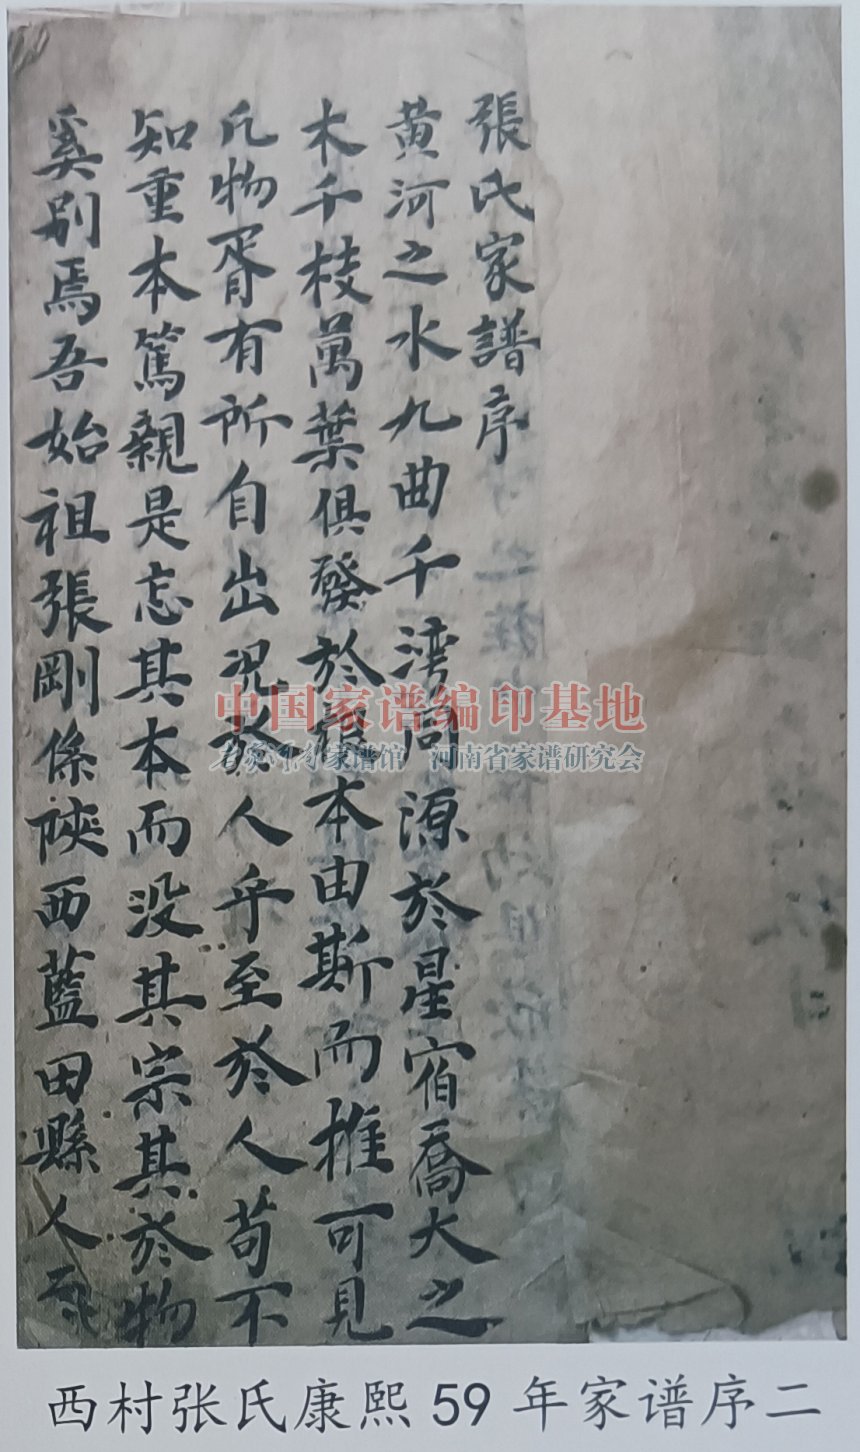 張氏家譜序
黄河之水九曲千湾同源於星宿喬大之
木千枝萬葉俱發於根本由斯而推可見
凡物胥有所自出况於人乎至於人苟不
知重本篤親是忘其本而没其宗其於物
奚别焉吾始祖張剛係陝西藍田縣人
中国家谱编印基地
家谱馆 河南省家谱研究会
西村张氏康熙59年家谱序二